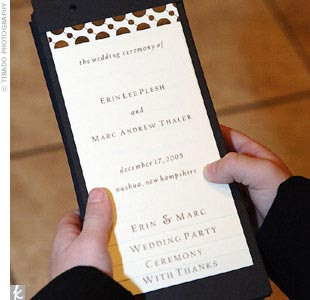 the wedding ceremony of
Erin Lee Plesh
and
Marc Andrew Thaler
december 17, 2005
nashua, new hampshire
Erin & Marc
Wedding Party
Ceremony
With Thanks
© TIRADO PHOTOGRAPHY